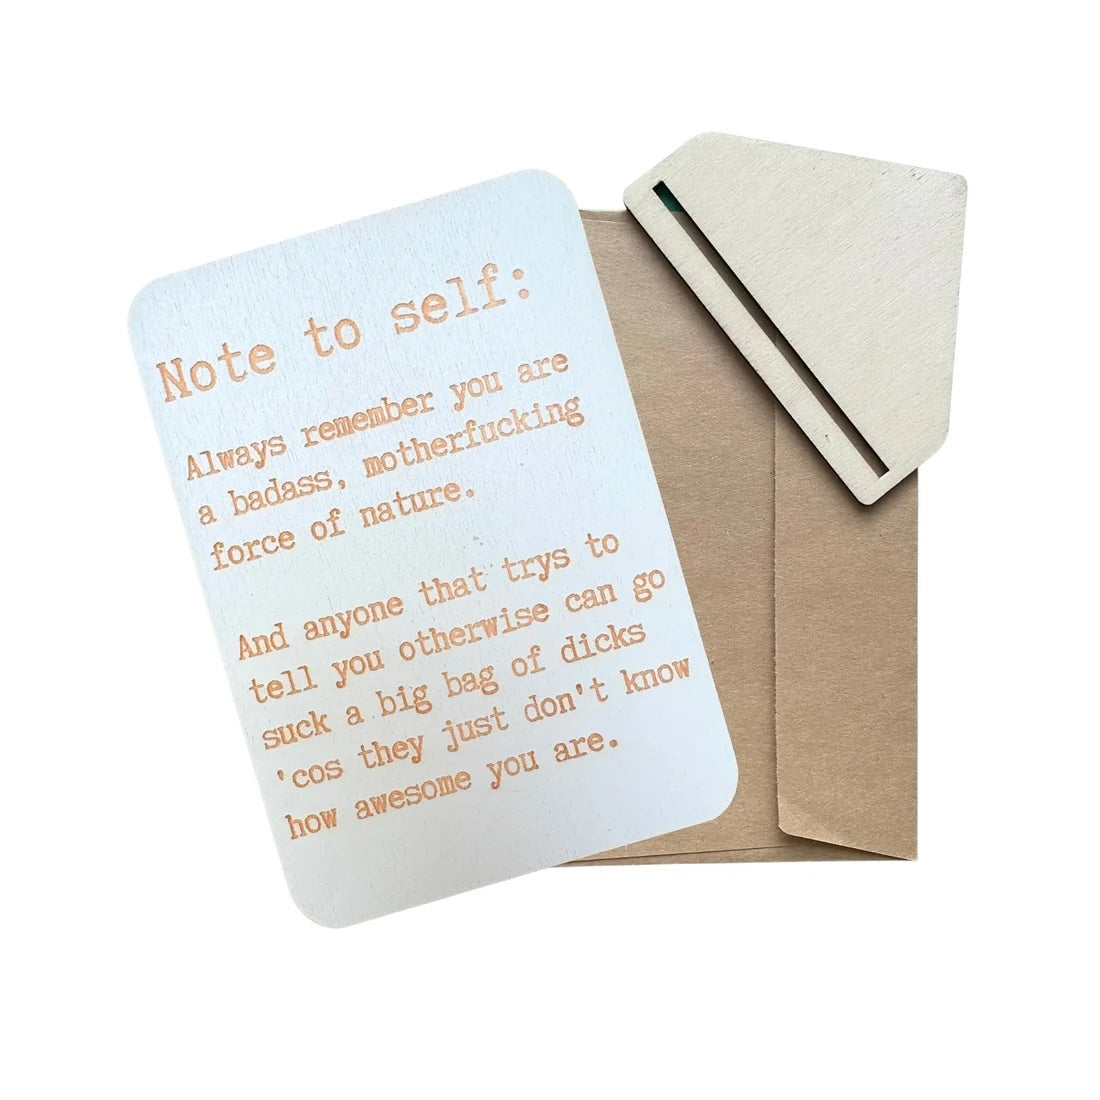 Note to self:
Always remember you are
a badass, motherfucking
force of nature.
And anyone that trys to
tell you otherwise can go
suck a big bag of dicks
'cos they just don't know
how awesome you are.